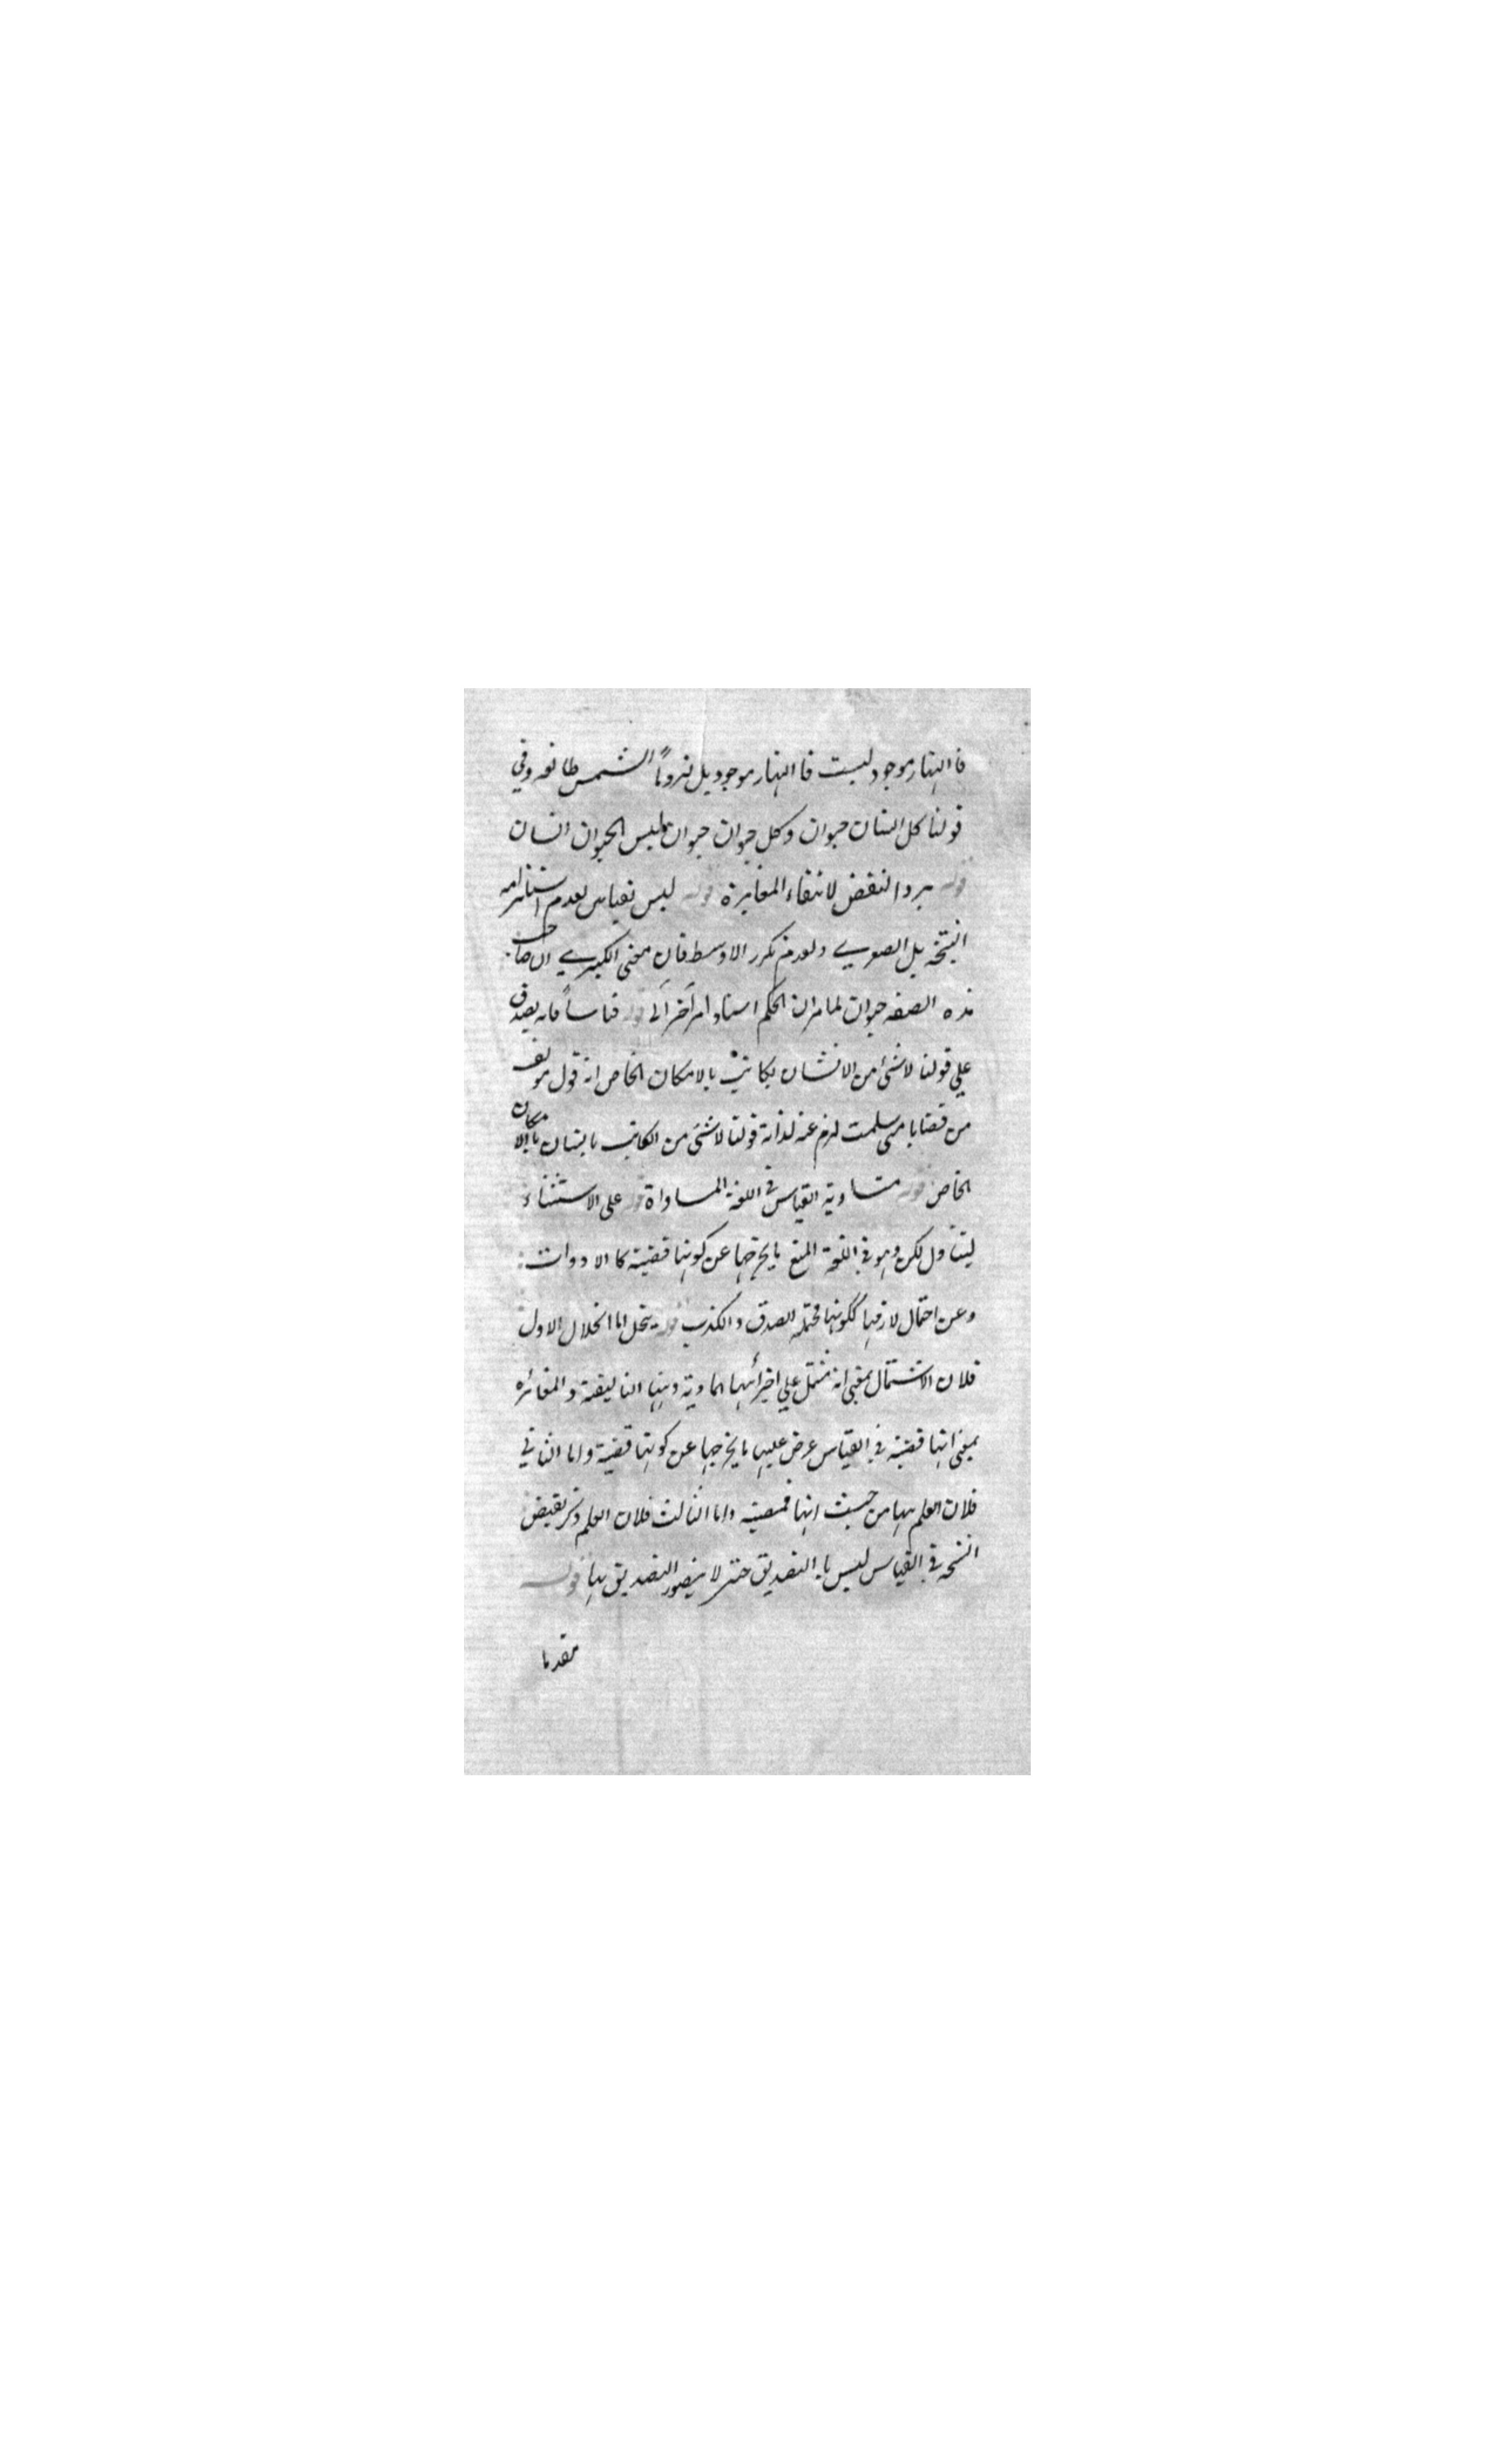 فالنهار موجود ليست فالنهار موجود بل لزوماً الشمس طالعه وفي
قولنا كل انسان حيوان وكل حيوان حيوان ليس الحيوان انسان
قوله يرد النقض لانتفاء المغايرة قوله ليس بقياس لعدم استلزامه
النتيجة بل الصوري ولعدم تكرر الاوسط فان معنى الكبرى ان صاحب
هذه الصفه حيوان لما مر ان الحكم اسناد امر آخر الى قوله قياساً فانه يصدق
علي قولنا لا شئ من الانسان بكاتب بالامكان الخاص انه قول مؤلف
من قضايا متى سلمت لزم عنه لذاته قولنا لا شئ من الكاتب بانسان بالامكان
الخاص قوله متساوية القياس في اللغة المساواة قوله على الاستثناء
ليتناول لكن وهو في اللغة المنع ما يخرجها عن كونها قضية كالادوات
وعن احتمال لازمها ككونها محتملة الصدق والكذب قوله ينحل اما انحلال الاول
فلان الاشتمال بمعنى انه مشتمل علي اجزائها المادية وهيئتها التاليفية والمغائره
بمعنى انها قضية في القياس عرض عليها ما يخرجها عن كونها قضية واما الثاني
فلان العلم بها من حيث انها قضية واما الثالث فلان العلم وذكر نقيض
النتيجه في القياس ليس بالتصديق حتى لا يتصور التصديق بها قوله
مقدما